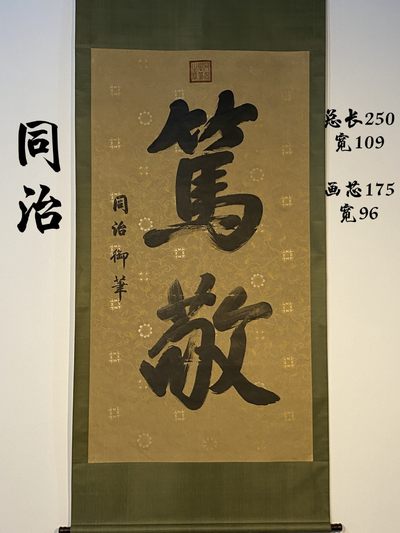 同治
篤敬
同治御筆
总长250
宽109
画芯175
宽96